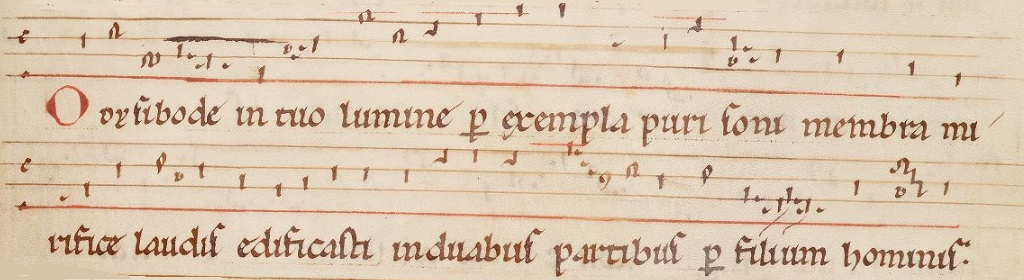 O dysibode in tuo lumine ꝑ exempla puri soni membra mi
rifice laudis edificasti in duabus partibus ꝑ filium hominis.